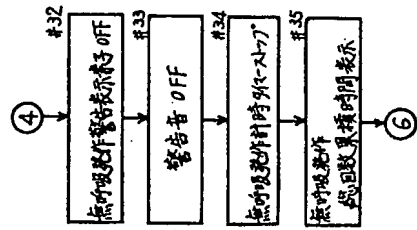 ④
#32
無呼吸発作警告表示素子OFF
#33
警告音 OFF
#34
無呼吸発作計時タイマーストップ
#35
無呼吸発作
総回数累積時間表示
⑥